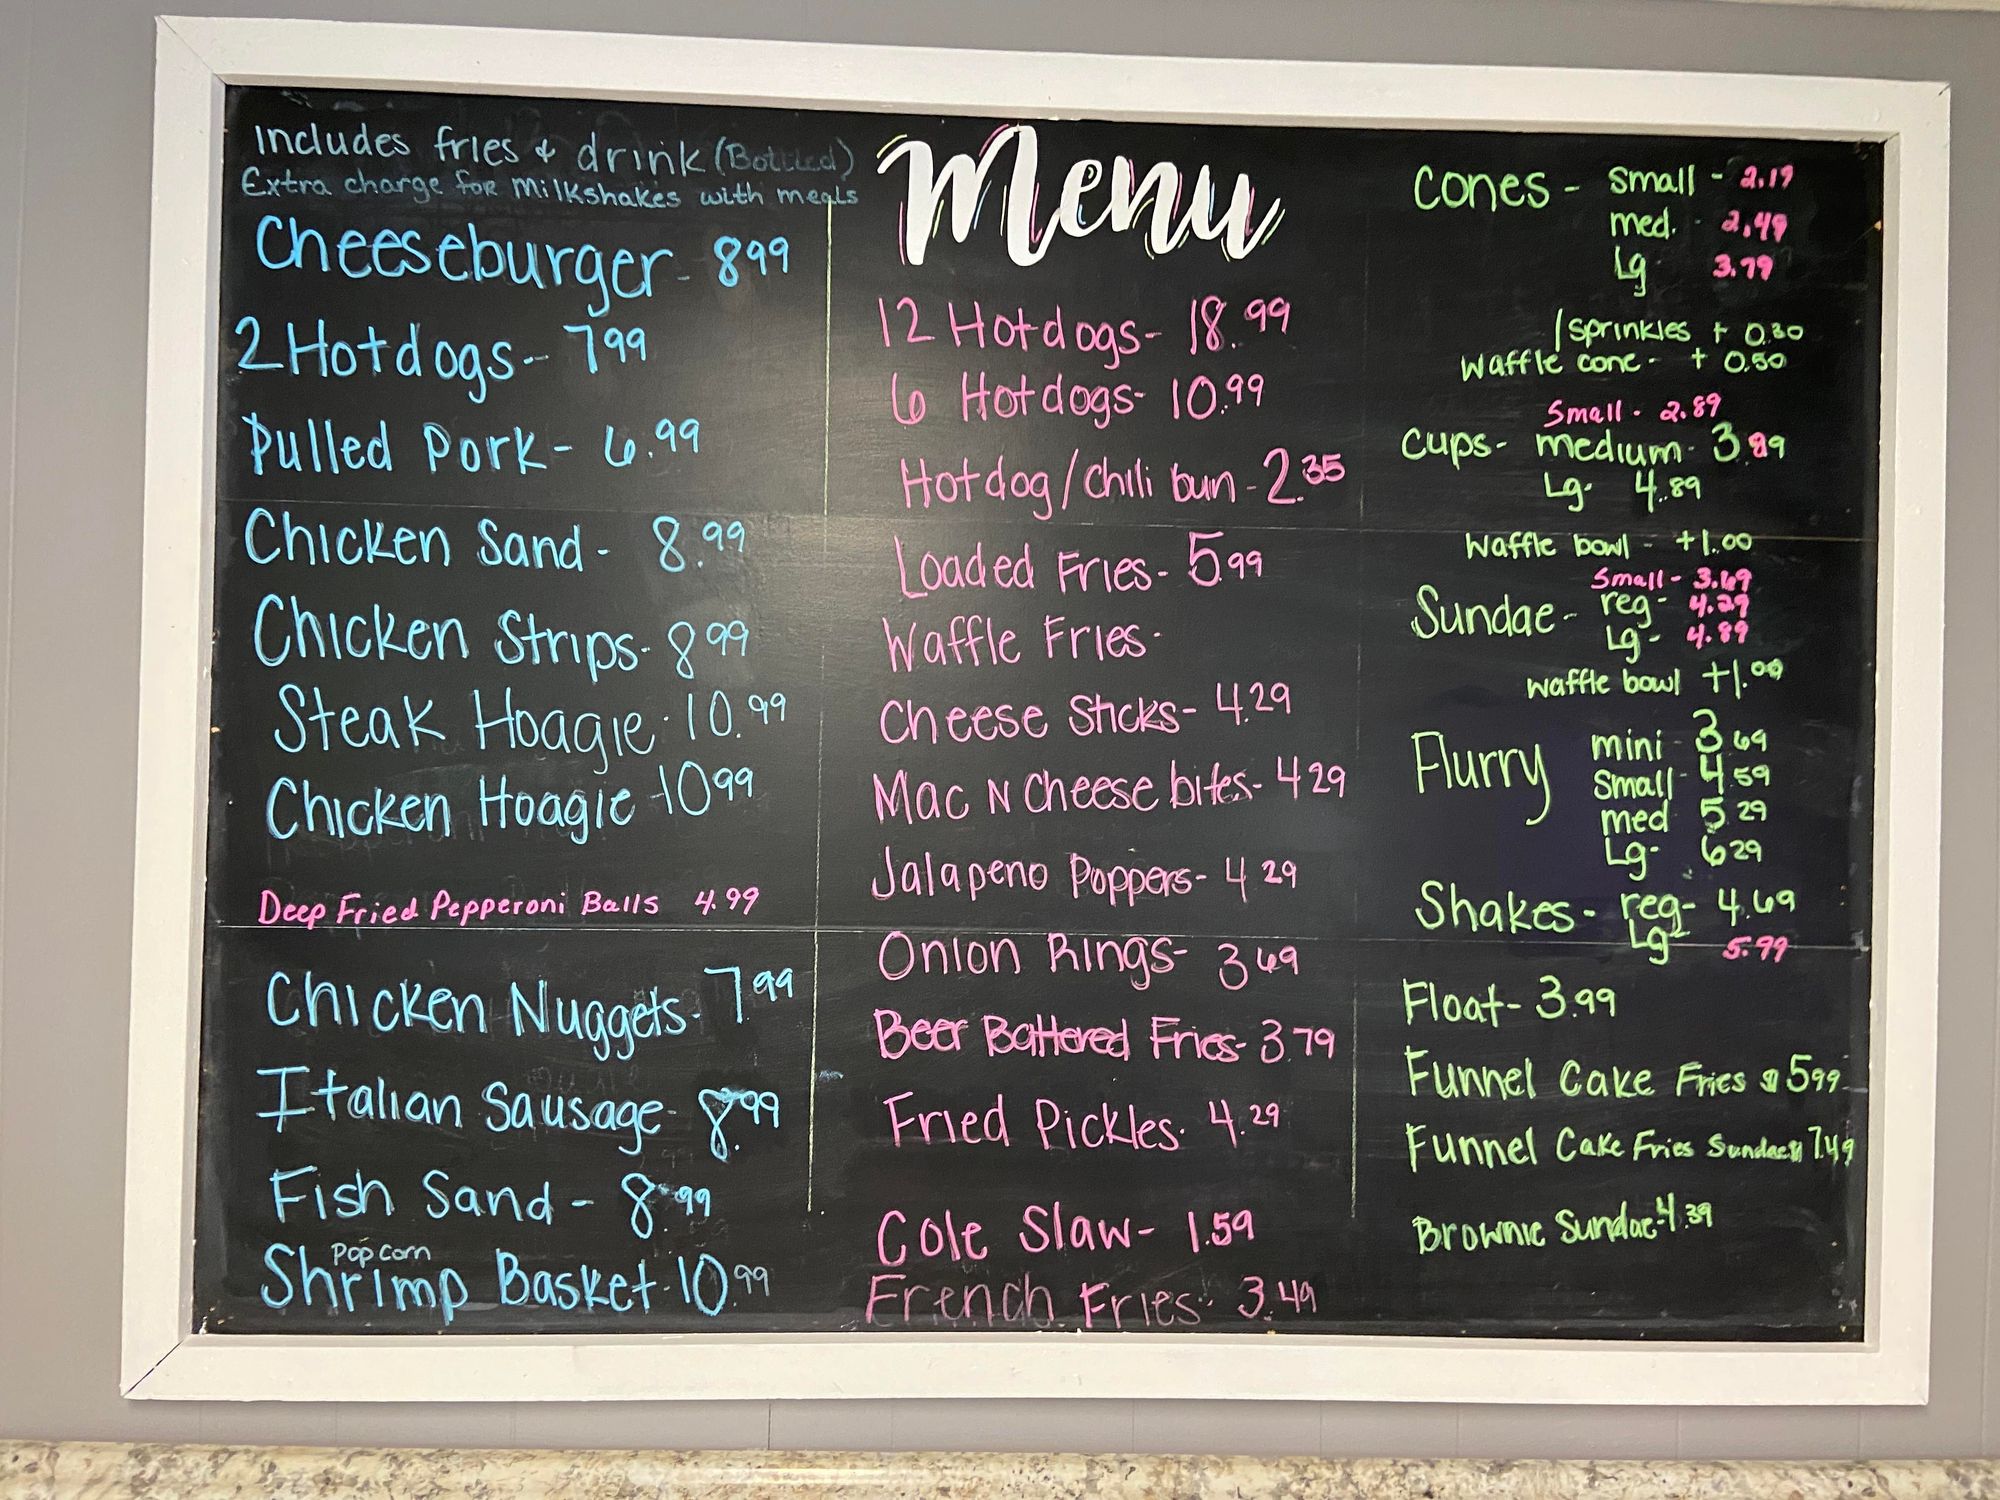 Includes fries + drink (Bottled)
Extra charge for Milkshakes with meals
Cheeseburger - 899
2 Hotdogs - 799
Pulled Pork - 6.99
Chicken Sand - 8.99
Chicken Strips - 899
Steak Hoagie - 10.99
Chicken Hoagie - 1099
Deep Fried Pepperoni Balls 4.99
Chicken Nuggets - 7.99
Italian Sausage - 8.99
Fish Sand - 8.99
Pop corn
Shrimp Basket - 10.99
Menu
12 Hotdogs - 18.99
6 Hotdogs - 10.99
Hotdog/Chili bun - 2.35
Loaded Fries - 599
Waffle Fries -
Cheese Sticks - 4.29
Mac N Cheese bites - 429
Jalapeno Poppers - 4 29
Onion Rings - 3 69
Beer Battered Fries - 3 79
Fried Pickles - 4.29
Cole Slaw - 1.59
French Fries - 3.49
Cones - Small - 2.19
med. - 2.49
Lg 3.79
/Sprinkles + 0.30
Waffle cone - + 0.50
Small - 2.89
Cups - medium - 3.89
Lg - 4.89
Waffle bowl - +1.00
Small - 3.69
Sundae - reg - 4.29
Lg - 4.89
waffle bowl +1.00
Flurry mini - 3 69
Small - 4.59
med 5 29
Lg - 6 29
Shakes - reg - 4.69
Lg - 5.99
Float - 3.99
Funnel Cake Fries $ 599
Funnel Cake Fries Sundae $ 7.49
Brownie Sundae - 4.39